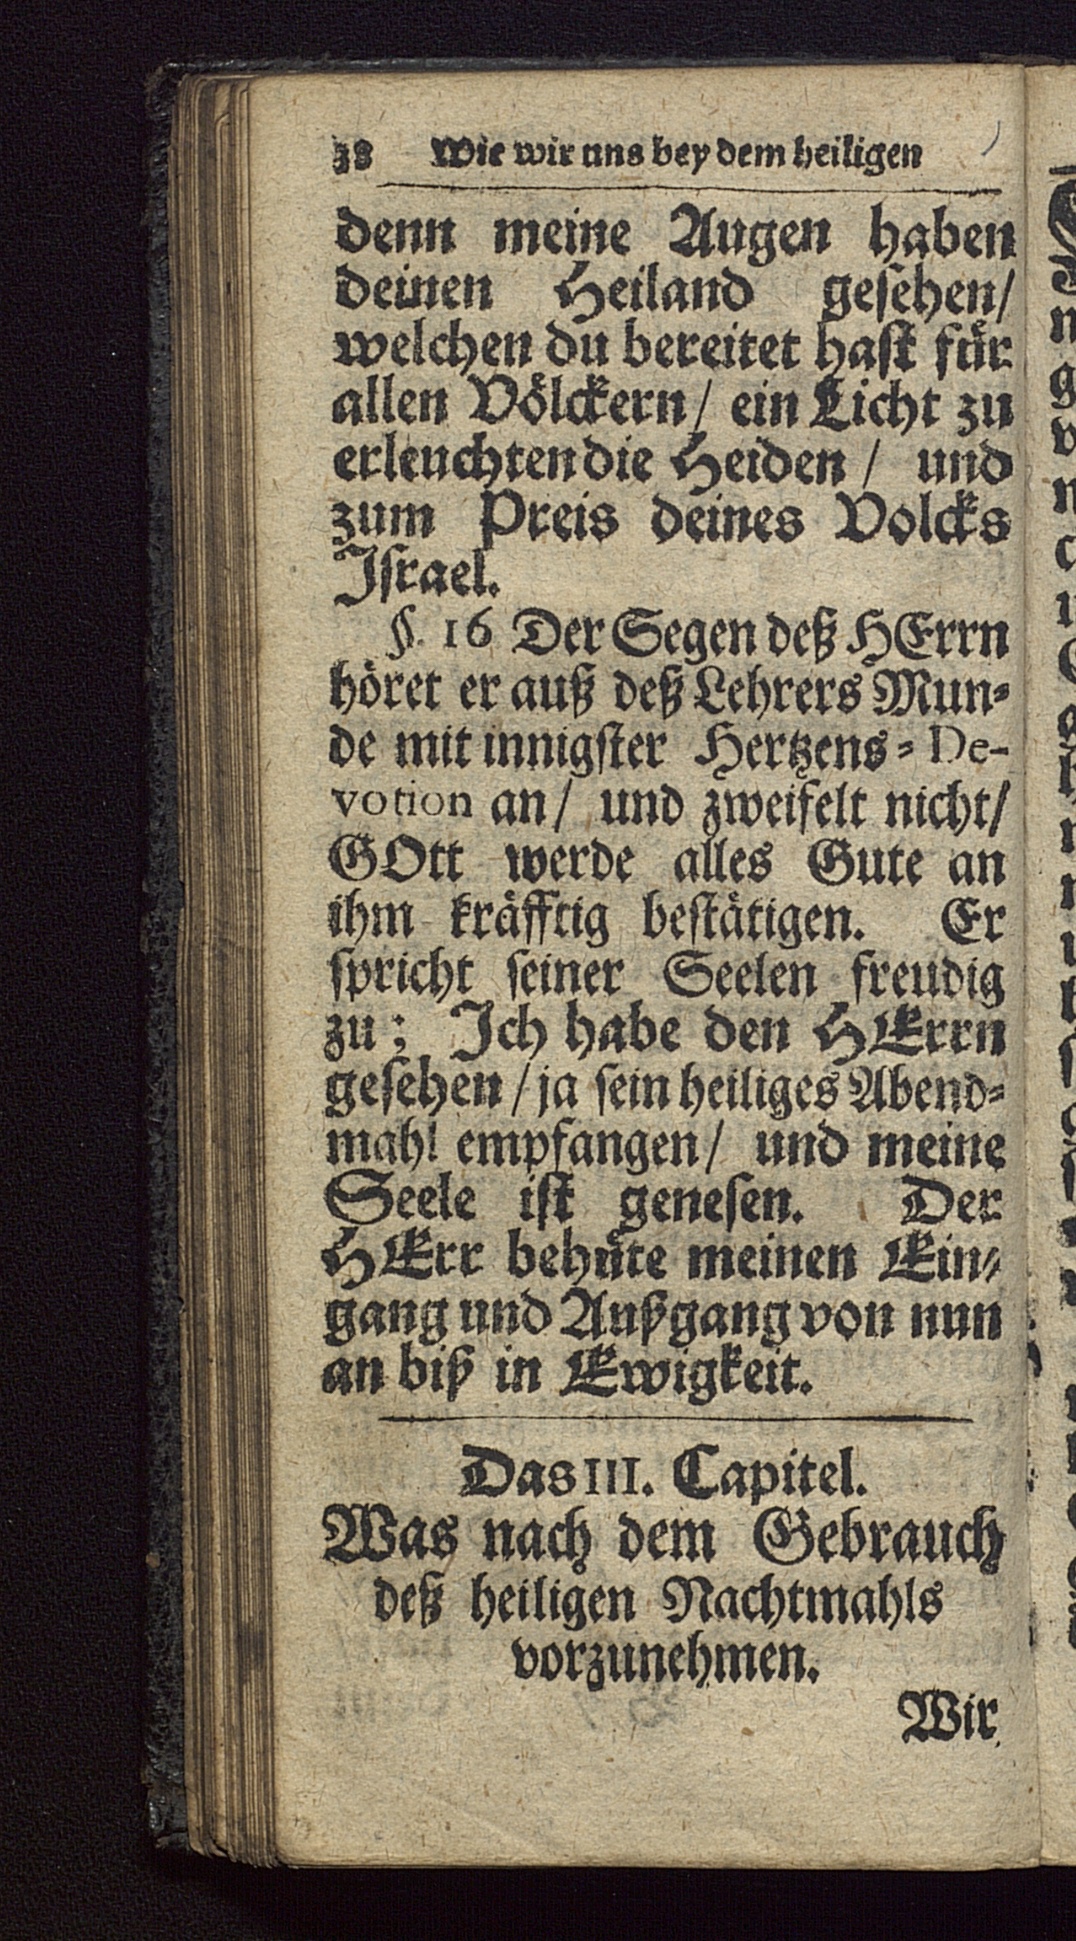 38 Wie wir uns bey dem heiligen
denn meine Augen haben
deinen Heiland gesehen/
welchen du bereitet hast für
allen Völckern/ ein Licht zu
erleuchten die Heiden / und
zum Preis deines Volcks
Israel.
§. 16 Der Segen deß HErrn
höret er auß deß Lehrers Mun-
de mit innigster Hertzens-De-
votion an/ und zweifelt nicht/
GOtt werde alles Gute an
ihm kräfftig bestätigen. Er
spricht seiner Seelen freudig
zu; Ich habe den HErrn
gesehen/ja sein heiliges Abend-
mahl empfangen/ und meine
Seele ist genesen. Der
HErr behüte meinen Ein-
gang und Außgang von nun
an biß in Ewigkeit.
Das III. Capitel.
Was nach dem Gebrauch
deß heiligen Nachtmahls
vorzunehmen.
Wir